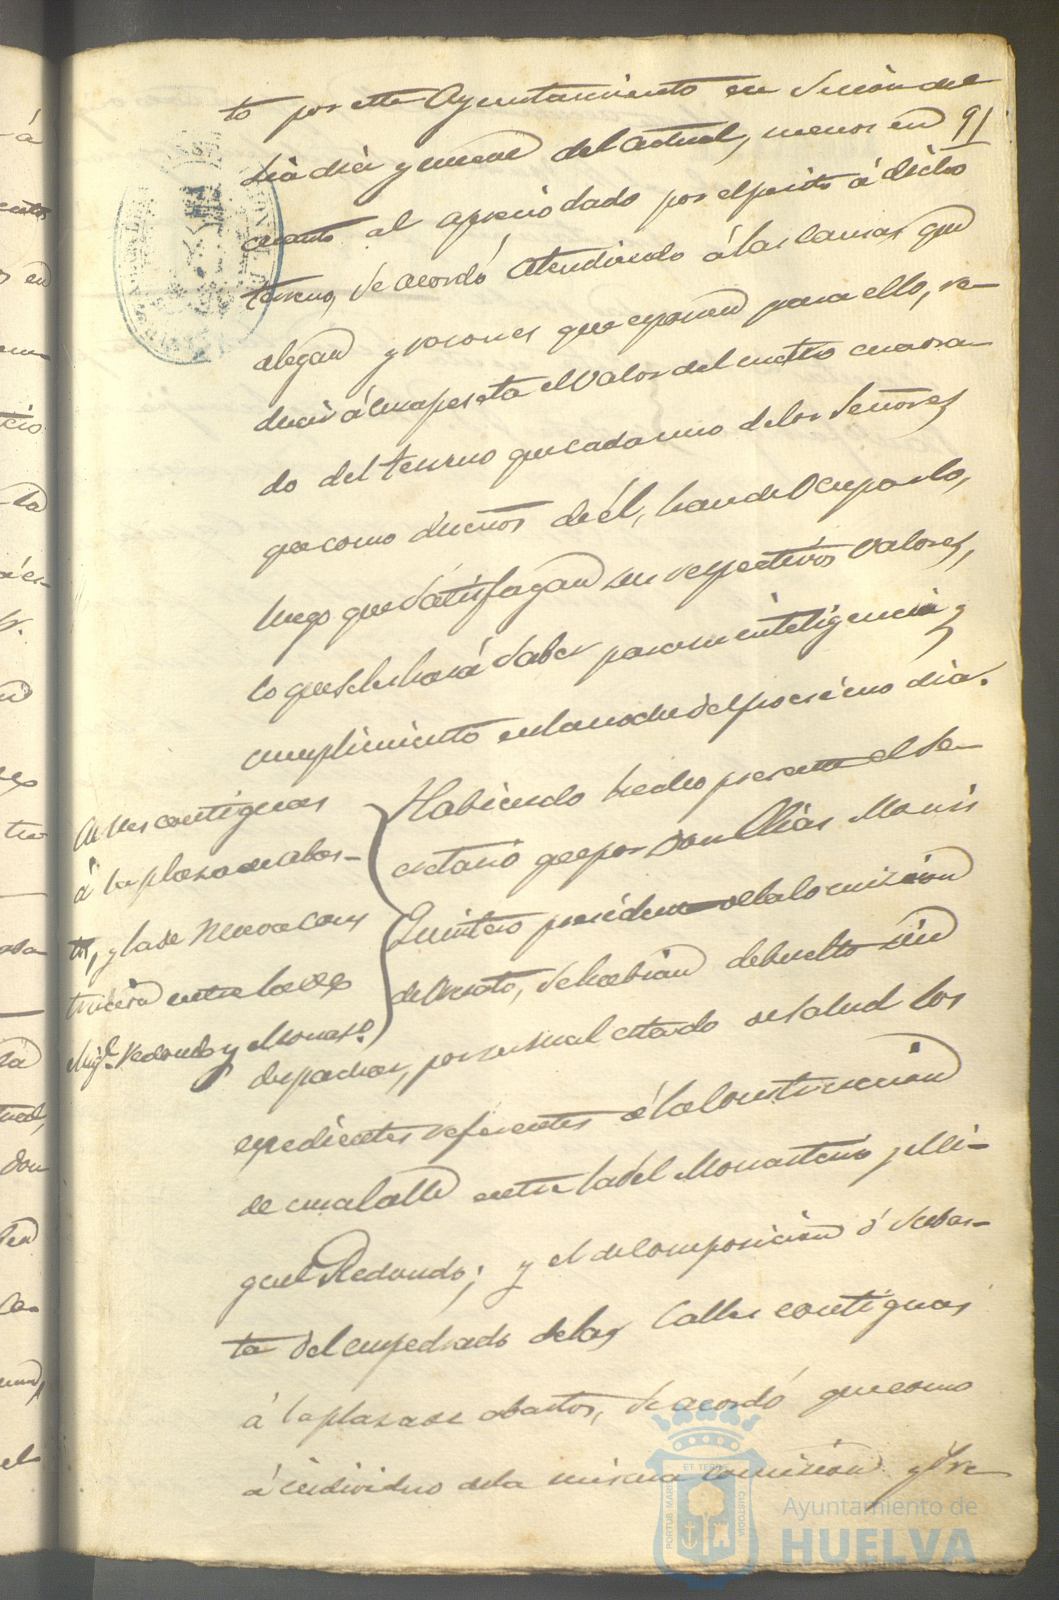 91
to por este Ayuntamiento en Sesion del
dia diez y nueve del actual, menos en
cuanto al aprecio dado por el perito á dicho
terreno, se acordó atendiendo á las causas que
alegan y razones que exponen para ello, re-
ducir á una peseta el valor del metro cuadra-
do del terreno que cada uno de los Señores
que como dueños de él, han de ocuparlo,
luego que satisfagan sus respectivos valores,
lo que se les hará saber para su inteligencia y
cumplimiento en la noche del procsimo dia.
Calles contiguas
á la plaza de abas-
tos, y la de nueva cons
truccion entre las de
Migl. Redondo y Monast.o
Habiendo hecho presente el Se-
cretario que por Don Elias Moris
Quintero presidente de la Comision
de Ornato, se habian debuelto sin
despachar, por su mal estado de salud los
expedientes referentes á la Construccion
de una Calle entre la del Monasterio y Mi-
guel Redondo; y el de Composicion ó subas-
ta del empedrado de las Calles contiguas
á la plaza de abastos, se acordó que como
á individuo de la misma comision y Tre
PORTUS MARIS ET TERRE CUSTODIA
Ayuntamiento de
HUELVA